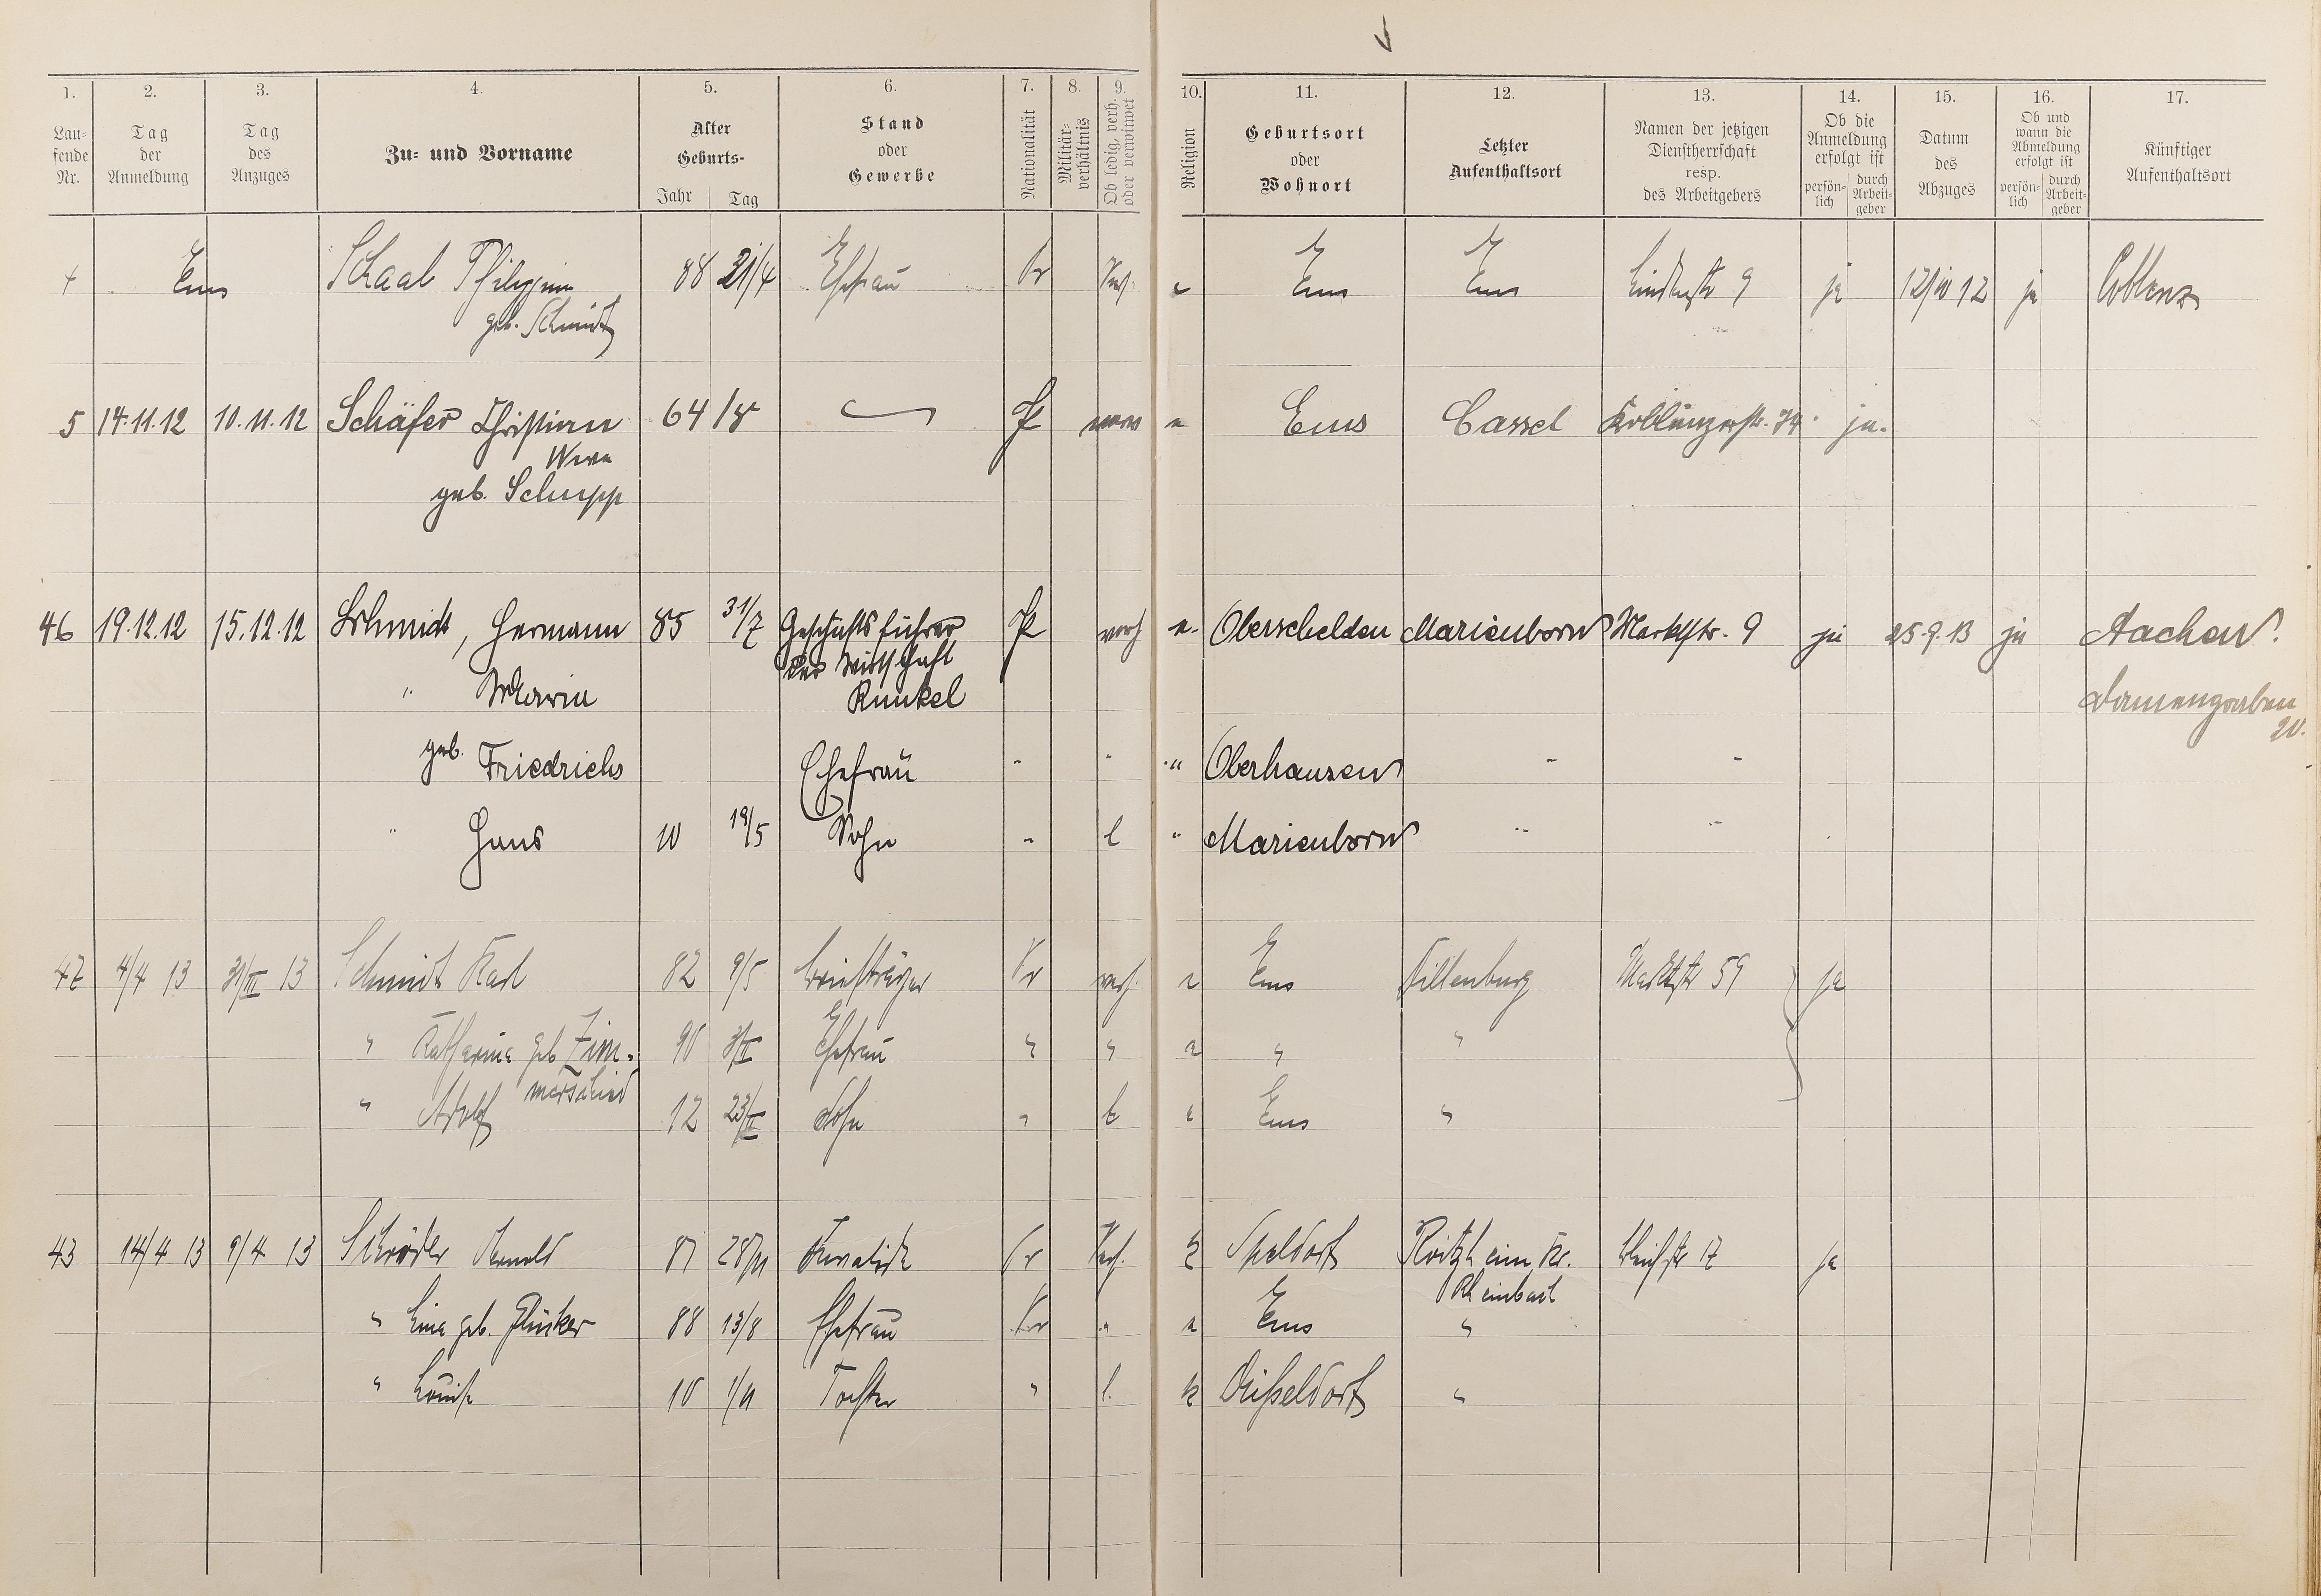 1. 2. 3. 4. 5. 6. 7. 8. 9. 10. 11. 12. 13. 14. 15. 16. 17.
Lau-
fende
Nr.
Tag
der
Anmeldung
Tag
des
Anzuges
Zu- und Vorname
Alter
Geburts-
Jahr Tag
Stand
oder
Gewerbe
Nationalität
Militär-
verhältnis
Ob ledig, verh.
oder verwitwet
Religion
Geburtsort
oder
Wohnort
Letzter
Aufenthaltsort
Namen der jetzigen
Dienstherrschaft
resp.
des Arbeitgebers
Ob die
Anmeldung
erfolgt ist
persön-
lich
durch
Arbeit-
geber
Datum
des
Abzuges
Ob und
wann die
Abmeldung
erfolgt ist
persön-
lich
durch
Arbeit-
geber
Künftiger
Aufenthaltsort
Ems Schaal Philippine 88 21/4 Ehefrau Pr Verh. Ems Ems Lindenstr 9 ja 12/IV 12 ja Coblenz
geb. Schmidt
5 14.11.12 10.11.12 Schäfer Christian 64 P Ems Cassel Koblenzerstr. 74 ja.
Wwe
geb. Schupp
46 19.12.12 15.12.12 Schmidt, Hermann 85 31/7 Geschäftsführer P verh e. Oberschelden Marienborn Marktstr. 9 ja 25.9.13 ja Aachen.
der Wirtschaft
" Maria Runkel
Damengraben
20.
geb. Friedrichs Ehefrau - " " Oberhausen - -
" Hans 10 19/5 Sohn - l " Marienborn " "
47 4/4 13 31/III 13 Schmidt Karl 82 9/5 Briefträger Pr verh. e Ems Dillenburg Marktstr 59 ja
" Katharina geb Zim- 90 Ehefrau " " e " "
merschied
" Adolf 12 23/II Sohn " l e Ems "
43 14/4 13 9/4 13 Schröder Arnold 87 28/11 Invalide Pr Verh. k Speldorf Roitzheim Kr. Bleichstr 17 ja
Rheinbach
" Lina geb. Flücker 88 13/8 Ehefrau Pr " e Ems "
" Louise 10 1/11 Tochter " l. k Düsseldorf "